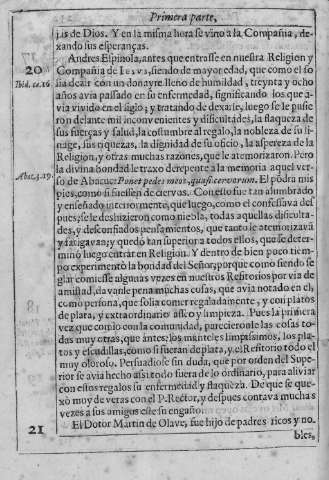 Primera parte,
ris de Dios. Y en la misma hora se vino a la Compañia, de-
xando sus esperanças.
20
Andres Espinola, antes que entrasse en nuestra Religion y
Compañia de Iesvs, siendo de mayor edad, que como el so-
Ibid. ca. 16
lia dezir con vn donayre lleno de humildad, treynta y ocho
años avia passado en su enfermedad, significando los que a-
via vivido en el siglo; y tratando de dexarle, luego se le pusie
ron delante mil inconvenientes y dificultades, la flaqueza de
sus fuerças y salud, la costumbre al regalo, la nobleza de su li-
nage, sus riquezas, la dignidad de su oficio, la aspereza de la
Religion, y otras muchas razones, que le atemorizaron. Pero
la divina bondad le traxo derepente a la memoria aquel ver-
Abac. 3. 19.
so de Abacuc: Ponet pedes meos, quasi cervorum. El podra mis
pies, como si fuessen de ciervos. Con esto fue tan alumbrado
y enseñado interiormente, que luego, como el confessava des
pues; se le deshizieron como niebla, todas aquellas dificulta-
des, y desconfiados pensamientos, que tanto le atemorizavã
y fatigavan; y quedò tan superior a todos ellos, que se deter-
minò luego entrar en Religion. Y dentro de bien poco tiem-
po experimentò la bondad del Señor, porque como siendo se
glar comiesse algunas vezes en nuestros Refitorios por via de
amistad, davale pena muchas cosas, que avia notado en el;
como persona, que solia comer regaladamente, y con platos
de plata, y extraordinario asseo y limpieza. Pues la primera
vez que comio con la comunidad, parecieronle las cosas to-
das muy otras, que antes; los manteles limpissimos, los pla-
tos y escudillas, como si fueran de plata, y el Refitorio todo el
muy oloroso. Persuadiose sin duda, que por orden del Supe-
rior se avia hecho assi todo fuera de lo ordinario, para aliviar
con estos regalos su enfermedad y flaqueza. De que se que-
xò muy de veras con el P. Rector, y despues contava mucha s
vezes a sus amigos este su engaño.
21
El Dotor Martin de Olave, fue hijo de padres ricos y no-
bles,